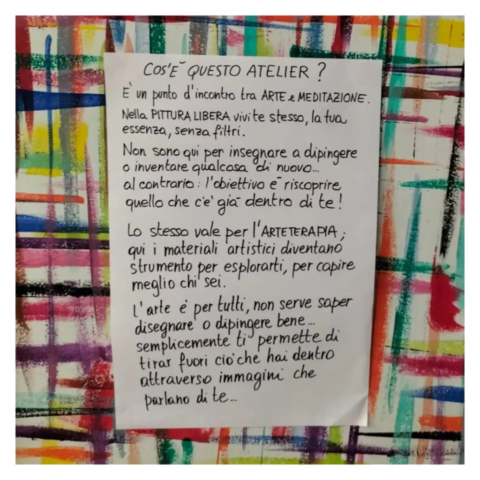 COS'È QUESTO ATELIER?
È un punto d'incontro tra ARTE e MEDITAZIONE.
Nella PITTURA LIBERA vivi te stesso, la tua
essenza, senza filtri.
Non sono qui per insegnare a dipingere
o inventare qualcosa di nuovo...
al contrario: l'obiettivo è riscoprire
quello che c'è già dentro di te!
Lo stesso vale per l'ARTETERAPIA;
qui i materiali artistici diventano
strumento per esplorarti, per capire
meglio chi sei.
L'arte è per tutti, non serve saper
disegnare o dipingere bene...
semplicemente ti permette di
tirar fuori ciò che hai dentro
attraverso immagini che
parlano di te...